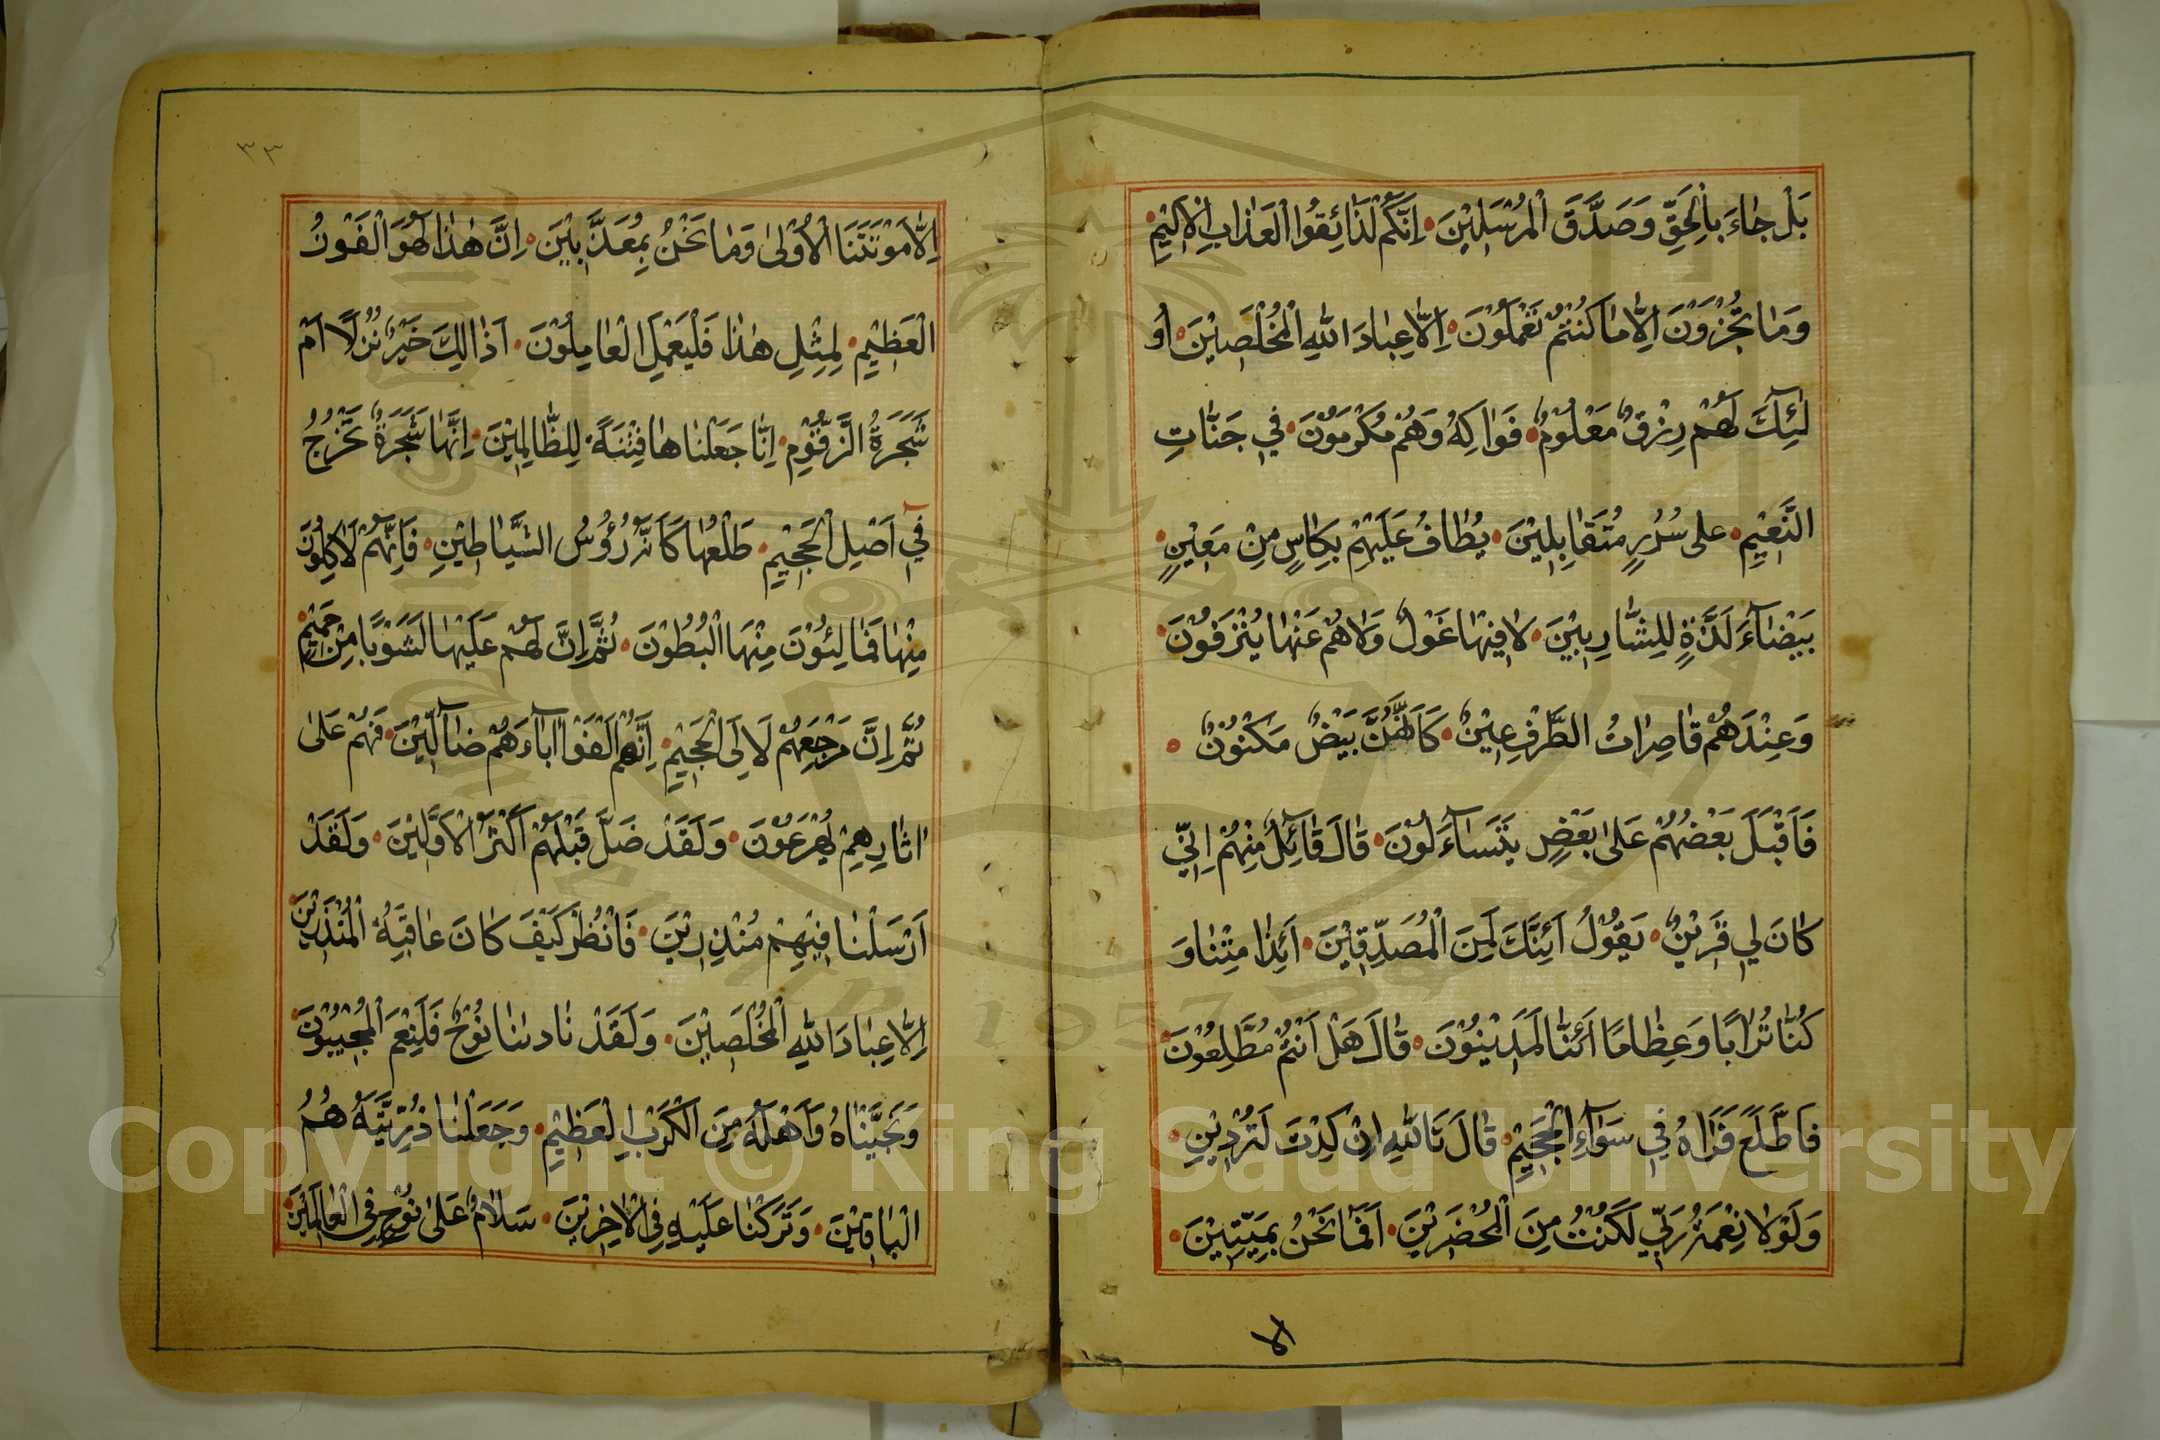 بَلْ جَاءَ بِالْحَقِّ وَصَدَّقَ الْمُرْسَلِيْنَ اِنَّكُمْ لَذَائِقُوا الْعَذَابِ الْاَلِيْمِ
وَمَا تُجْزَوْنَ اِلَّا مَا كُنْتُمْ تَعْمَلُوْنَ اِلَّا عِبَادَ اللّٰهِ الْمُخْلَصِيْنَ اُو
لٰئِكَ لَهُمْ رِزْقٌ مَعْلُوْمٌ فَوَاكِهُ وَهُمْ مُكْرَمُوْنَ فِي جَنَّاتِ
النَّعِيْمِ عَلٰى سُرُرٍ مُتَقَابِلِيْنَ يُطَافُ عَلَيْهِمْ بِكَاْسٍ مِنْ مَعِيْنٍ
بَيْضَآءَ لَذَّةٍ لِلشَّارِبِيْنَ لَا فِيْهَا غَوْلٌ وَلَا هُمْ عَنْهَا يُنْزَفُوْنَ
وَعِنْدَهُمْ قَاصِرَاتُ الطَّرْفِ عِيْنٌ كَاَنَّهُنَّ بَيْضٌ مَكْنُوْنٌ
فَاَقْبَلَ بَعْضُهُمْ عَلٰى بَعْضٍ يَتَسَآءَلُوْنَ قَالَ قَائِلٌ مِنْهُمْ اِنِّي
كَانَ لِي قَرِيْنٌ يَقُوْلُ اَئِنَّكَ لَمِنَ الْمُصَدِّقِيْنَ اَئِذَا مِتْنَا وَ
كُنَّا تُرَابًا وَعِظَامًا اَئِنَّا لَمَدِيْنُوْنَ قَالَ هَلْ اَنْتُمْ مُطَّلِعُوْنَ
فَاطَّلَعَ فَرَاٰهُ فِي سَوَآءِ الْجَحِيْمِ قَالَ تَاللّٰهِ اِنْ كِدْتَ لَتُرْدِيْنِ
وَلَوْلَا نِعْمَةُ رَبِّي لَكُنْتُ مِنَ الْمُحْضَرِيْنَ اَفَمَا نَحْنُ بِمَيِّتِيْنَ
الا
٣٣
اِلَّا مَوْتَتَنَا الْاُوْلٰى وَمَا نَحْنُ بِمُعَذَّبِيْنَ اِنَّ هٰذَا لَهُوَ الْفَوْزُ
الْعَظِيْمِ لِمِثْلِ هٰذَا فَلْيَعْمَلِ الْعَامِلُوْنَ اَذٰالِكَ خَيْرٌ نُزُلًا اَمْ
شَجَرَةُ الزَّقُّوْمِ اِنَّا جَعَلْنَاهَا فِتْنَةً لِلظَّالِمِيْنَ اِنَّهَا شَجَرَةٌ تَخْرُجُ
فِي اَصْلِ الْجَحِيْمِ طَلْعُهَا كَاَنَّهُ رُؤُسُ الشَّيَاطِيْنِ فَاِنَّهُمْ لَاٰكِلُوْنَ
مِنْهَا فَمَالِئُوْنَ مِنْهَا الْبُطُوْنَ ثُمَّ اِنَّ لَهُمْ عَلَيْهَا لَشَوْبًا مِنْ حَمِيْمٍ
ثُمَّ اِنَّ مَرْجِعَهُمْ لَاِلَى الْجَحِيْمِ اِنَّهُمْ اَلْفَوْا اٰبَآءَهُمْ ضَآلِّيْنَ فَهُمْ عَلٰى
اٰثَارِهِمْ يُهْرَعُوْنَ وَلَقَدْ ضَلَّ قَبْلَهُمْ اَكْثَرُ الْاَوَّلِيْنَ وَلَقَدْ
اَرْسَلْنَا فِيْهِمْ مُنْذِرِيْنَ فَانْظُرْ كَيْفَ كَانَ عَاقِبَةُ الْمُنْذَرِيْنَ
اِلَّا عِبَادَ اللّٰهِ الْمُخْلَصِيْنَ وَلَقَدْ نَادٰىنَا نُوْحٌ فَلَنِعْمَ الْمُجِيْبُوْنَ
وَنَجَّيْنَاهُ وَاَهْلَهُ مِنَ الْكَرْبِ الْعَظِيْمِ وَجَعَلْنَا ذُرِّيَّتَهُ هُمُ
الْبَاقِيْنَ وَتَرَكْنَا عَلَيْهِ فِي الْاٰخِرِيْنَ سَلَامٌ عَلٰى نُوْحٍ فِي الْعَالَمِيْنَ
Copyright © King Saud University
1957